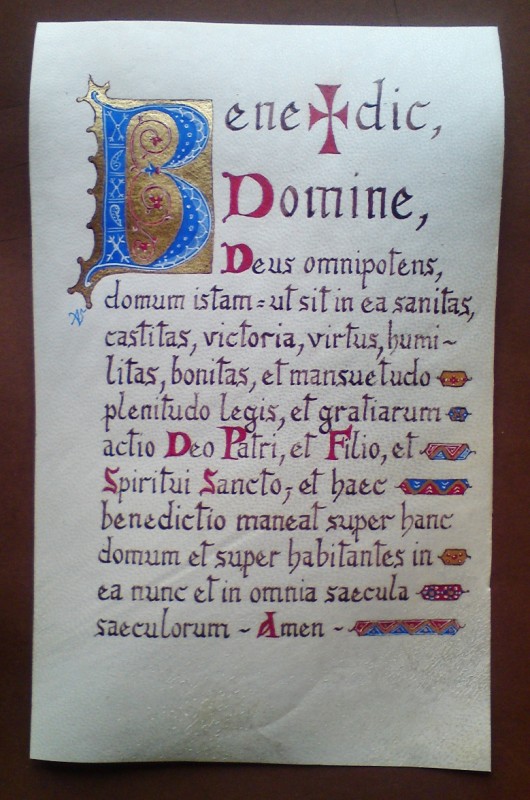 Bene✠dic,
Domine,
Deus omnipotens,
domum istam - ut sit in ea sanitas,
castitas, victoria, virtus, humi~
litas, bonitas, et mansuetudo
plenitudo legis, et gratiarum
actio Deo Patri, et Filio, et
Spiritui Sancto,- et haec
benedictio maneat super hanc
domum et super habitantes in
ea nunc et in omnia saecula
saeculorum ~ Amen ~